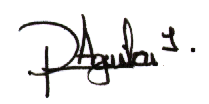 PAguilar J.